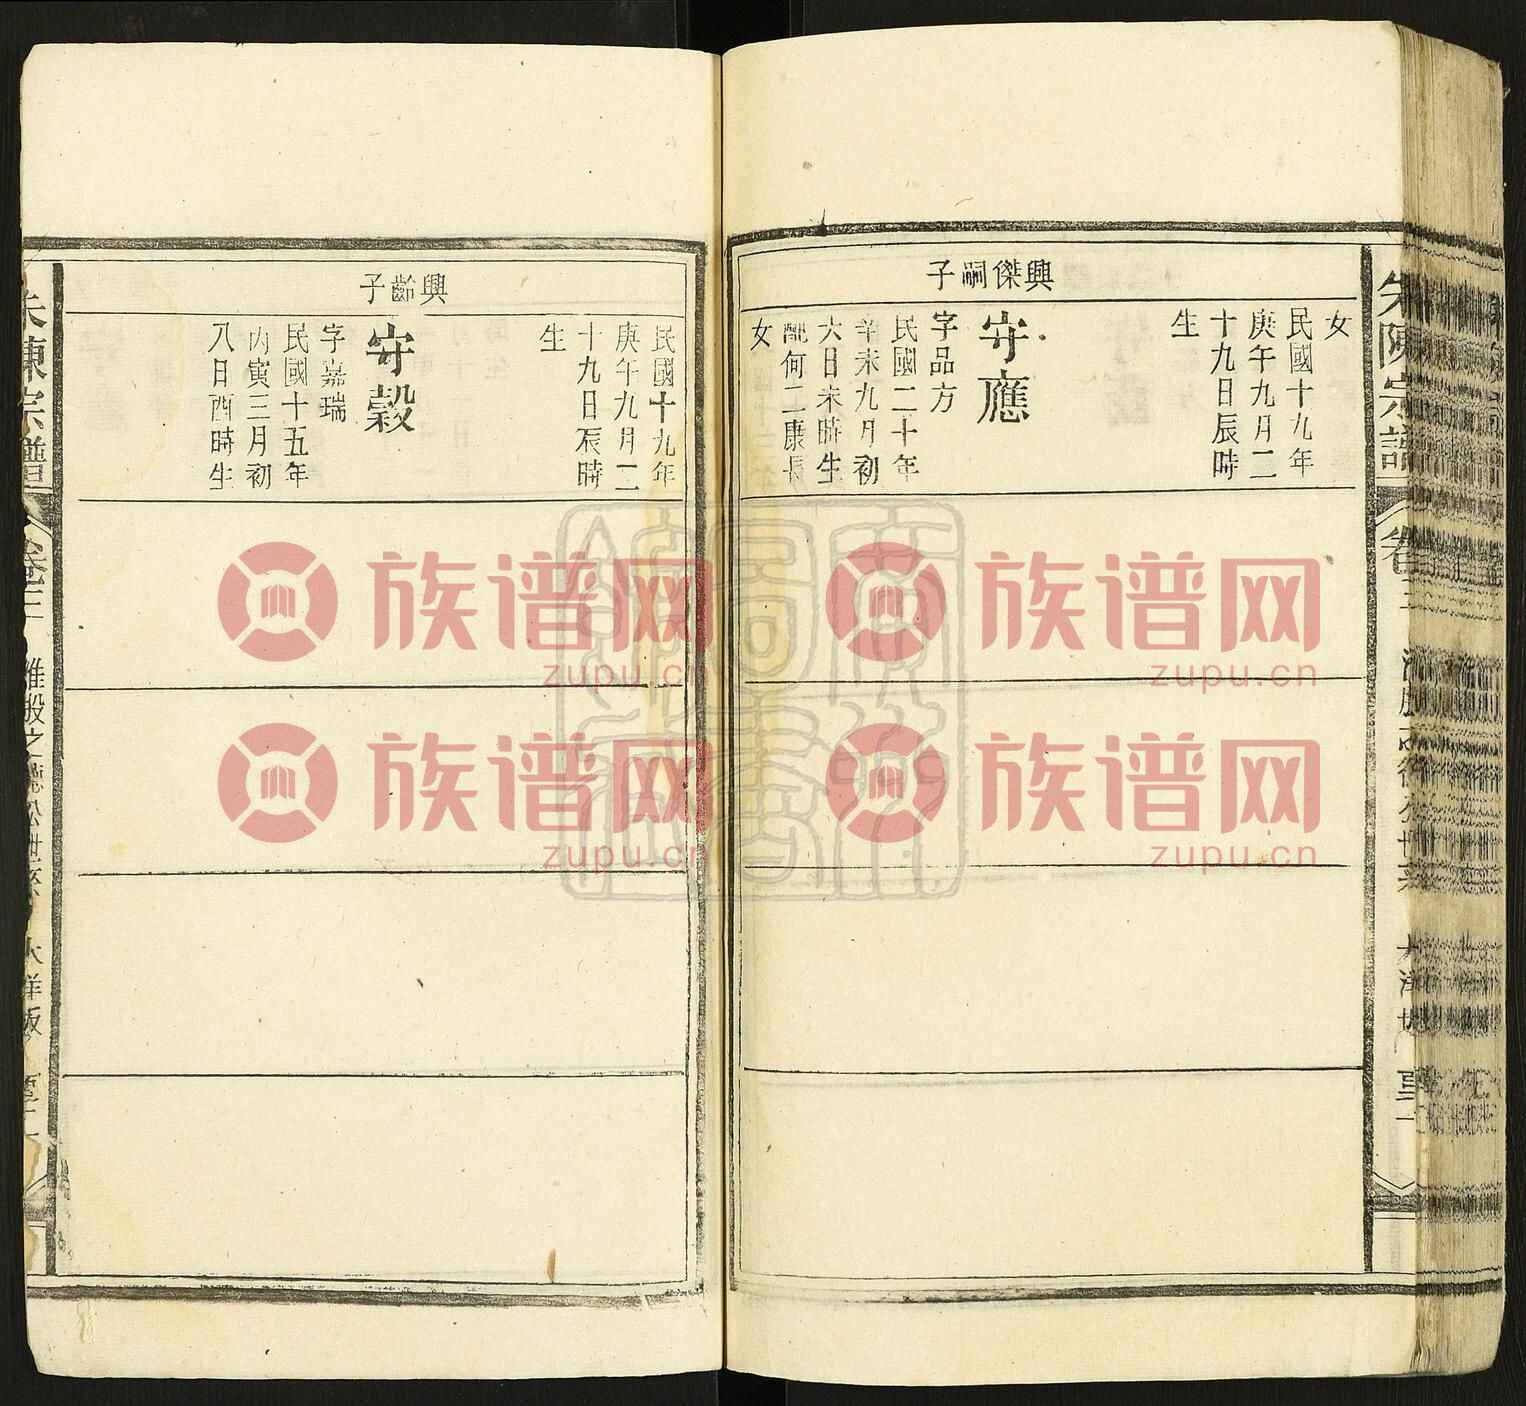 朱陳宗譜
卷三
大洋坂
興傑嗣子
女
民國十九年
庚午九月二
十九日辰時
生
守應
字品方
民國二十年
辛未九月初
六日未時生
配何二康長
女
興齡子
民國十九年
庚午九月二
十九日辰時
生
守穀
字嘉瑞
民國十五年
丙寅三月初
八日酉時生
朱陳宗譜
卷三
雅股之德公世系
大洋坂
族谱网
zupu.cn
族谱网
zupu.cn
族谱网
zupu.cn
族谱网
zupu.cn